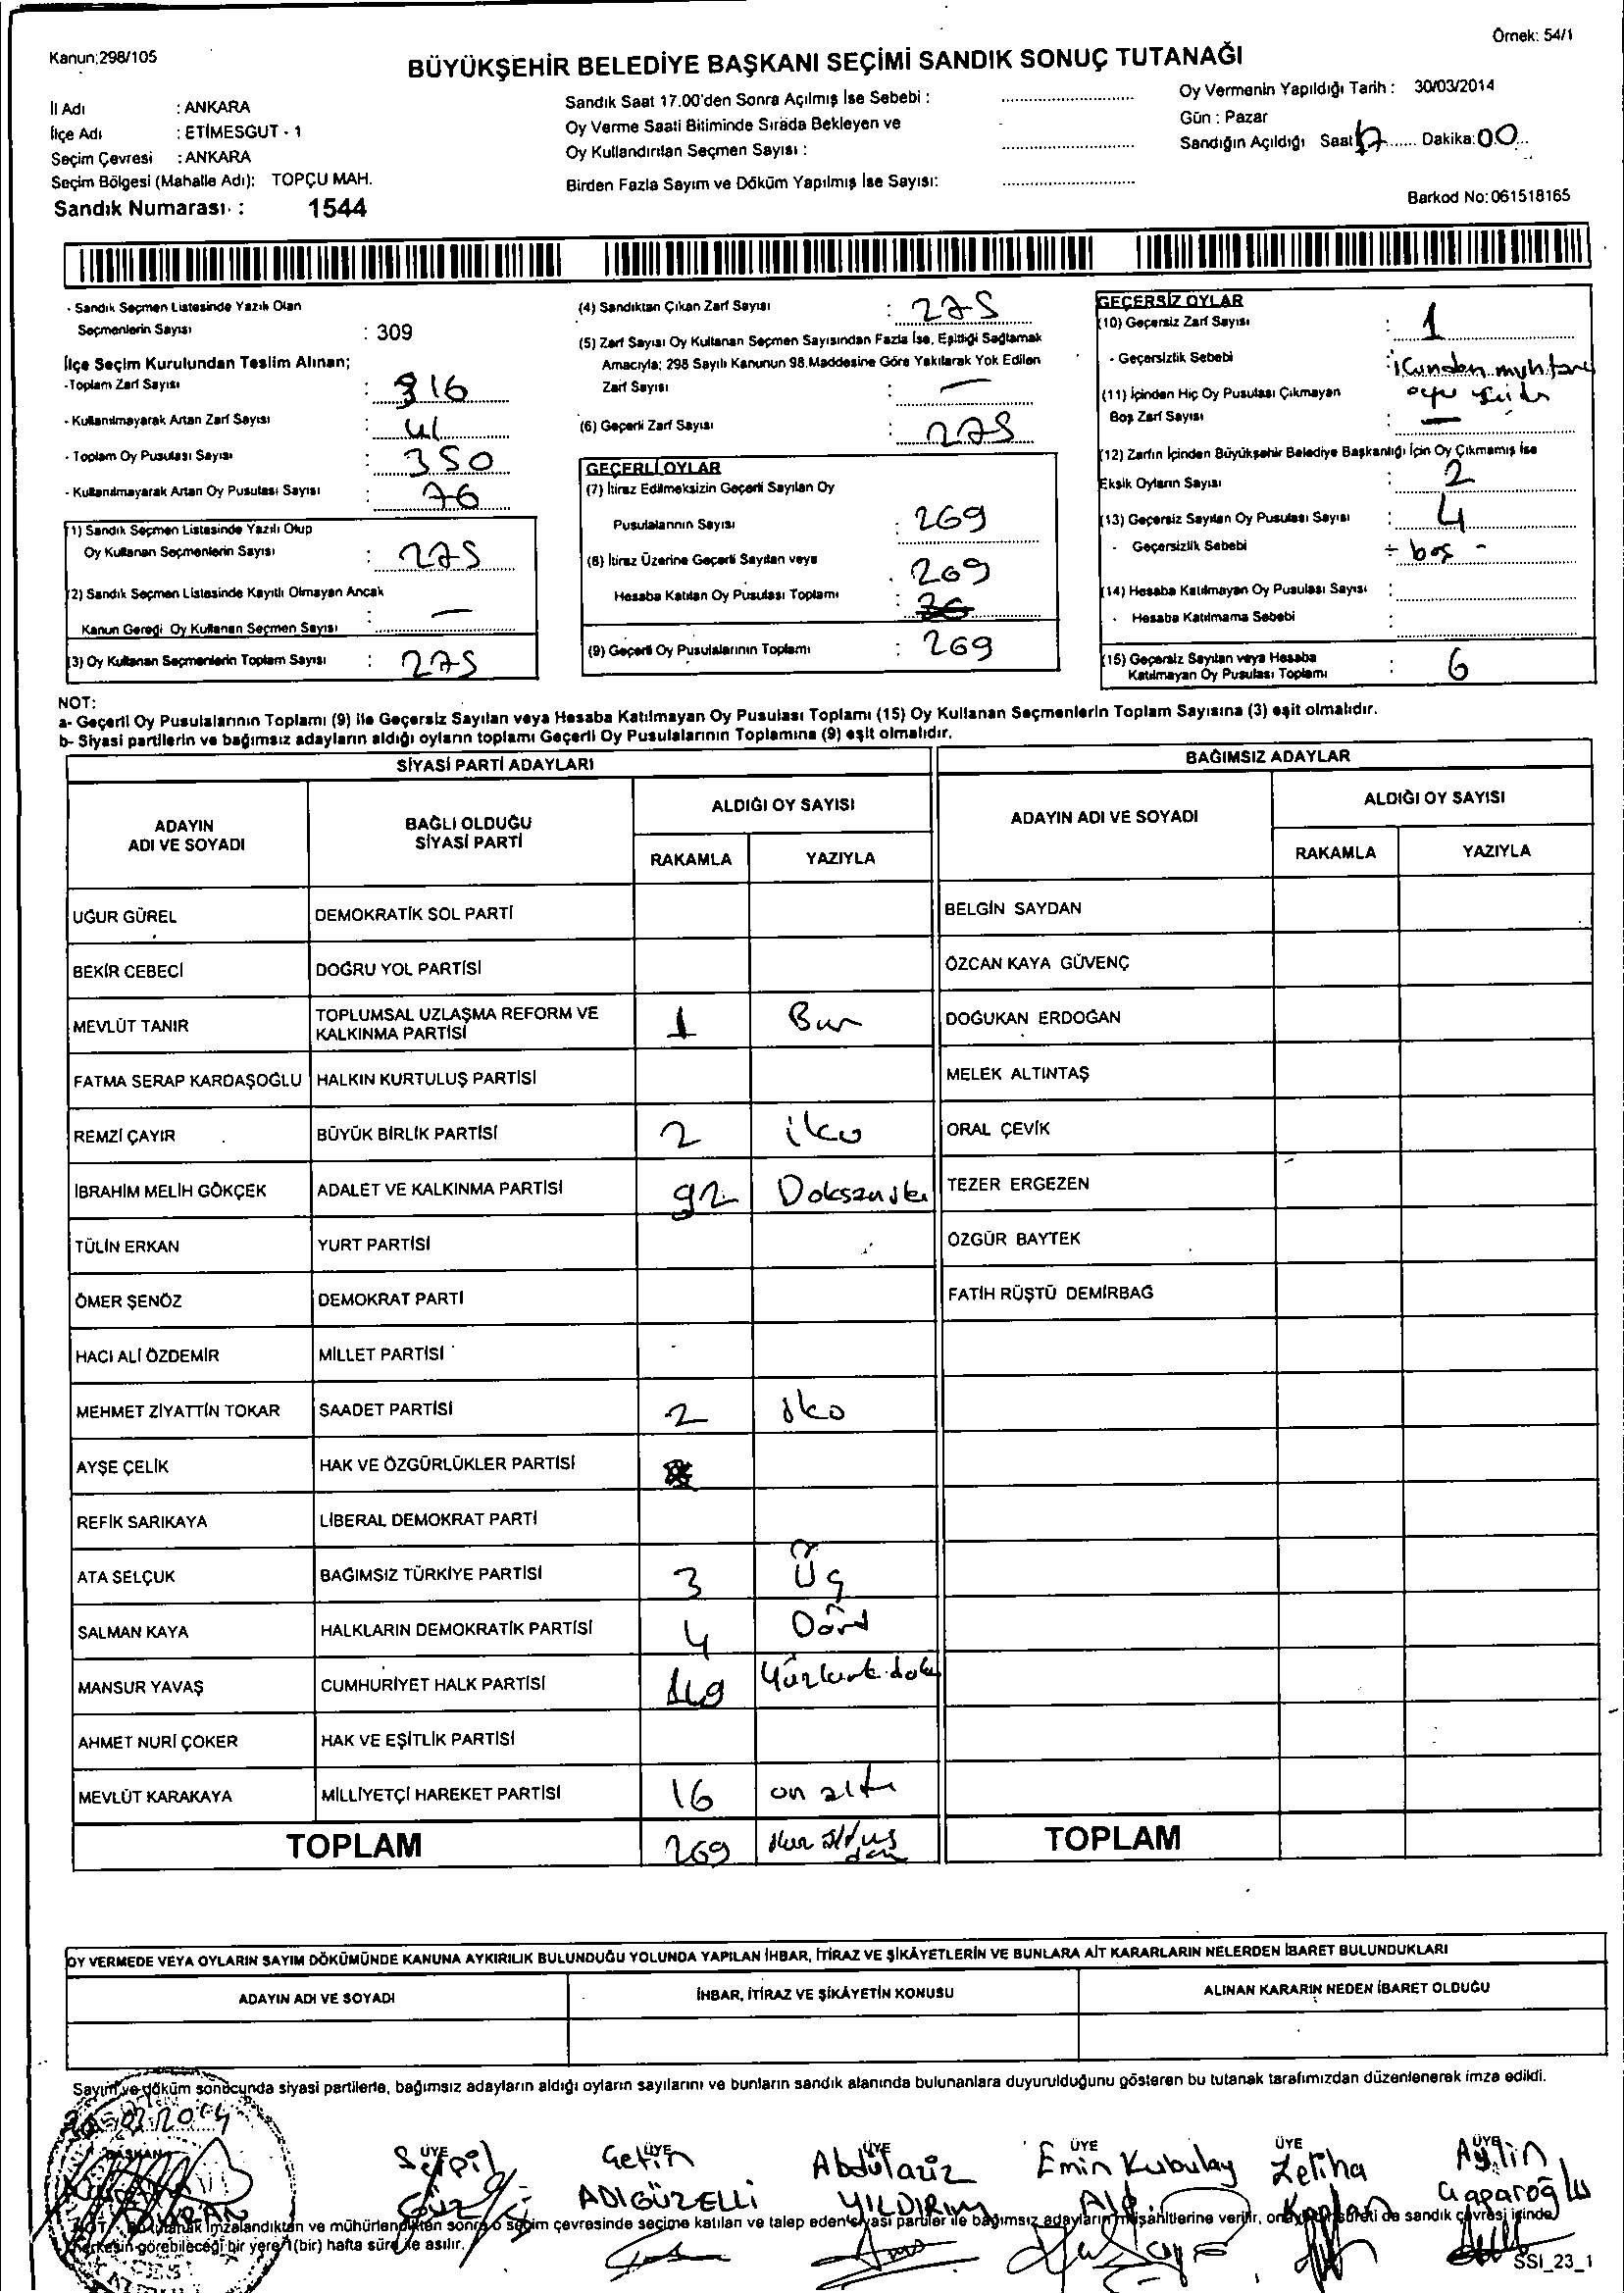 Kanun;298/105
Örnek: 54/1
BÜYÜKŞEHİR BELEDİYE BAŞKANI SEÇİMİ SANDIK SONUÇ TUTANAĞI
İl Adı : ANKARA
İlçe Adı : ETİMESGUT - 1
Seçim Çevresi : ANKARA
Seçim Bölgesi (Mahalle Adı): TOPÇU MAH.
Sandık Numarası : 1544
Sandık Saat 17.00'den Sonra Açılmış İse Sebebi :
Oy Verme Saati Bitiminde Sırada Bekleyen ve
Oy Kullandırılan Seçmen Sayısı :
Birden Fazla Sayım ve Döküm Yapılmış İse Sayısı:
Oy Vermenin Yapıldığı Tarih : 30/03/2014
Gün : Pazar
Sandığın Açıldığı Saat 17 Dakika: 00
Barkod No: 061518165
- Sandık Seçmen Listesinde Yazılı Olan
Seçmenlerin Sayısı : 309
İlçe Seçim Kurulundan Teslim Alınan;
-Toplam Zarf Sayısı : 316
- Kullanılmayarak Artan Zarf Sayısı : 41
- Toplam Oy Pusulası Sayısı : 350
- Kullanılmayarak Artan Oy Pusulası Sayısı : 76
(1) Sandık Seçmen Listesinde Yazılı Olup
Oy Kullanan Seçmenlerin Sayısı : 275
(2) Sandık Seçmen Listesinde Kayıtlı Olmayan Ancak
Kanun Gereği Oy Kullanan Seçmen Sayısı : —
(3) Oy Kullanan Seçmenlerin Toplam Sayısı : 275
(4) Sandıktan Çıkan Zarf Sayısı : 275
(5) Zarf Sayısı Oy Kullanan Seçmen Sayısından Fazla İse, Eşitliği Sağlamak
Amacıyla; 298 Sayılı Kanunun 98.Maddesine Göre Yakılarak Yok Edilen
Zarf Sayısı : —
(6) Geçerli Zarf Sayısı : 275
GEÇERLİ OYLAR
(7) İtiraz Edilmeksizin Geçerli Sayılan Oy
Pusulalarının Sayısı : 269
(8) İtiraz Üzerine Geçerli Sayılan veya
Hesaba Katılan Oy Pusulası Toplamı : 269
(9) Geçerli Oy Pusulalarının Toplamı : 269
GEÇERSİZ OYLAR
(10) Geçersiz Zarf Sayısı : 1
- Geçersizlik Sebebi :
(11) İçinden Hiç Oy Pusulası Çıkmayan
Boş Zarf Sayısı : —
(12) Zarfın İçinden Büyükşehir Belediye Başkanlığı İçin Oy Çıkmamış İse
Eksik Oyların Sayısı : 2
(13) Geçersiz Sayılan Oy Pusulası Sayısı : 4
- Geçersizlik Sebebi : - boş -
(14) Hesaba Katılmayan Oy Pusulası Sayısı :
- Hesaba Katılmama Sebebi :
(15) Geçersiz Sayılan veya Hesaba
Katılmayan Oy Pusulası Toplamı : 6
NOT:
a- Geçerli Oy Pusulalarının Toplamı (9) ile Geçersiz Sayılan veya Hesaba Katılmayan Oy Pusulası Toplamı (15) Oy Kullanan Seçmenlerin Toplam Sayısına (3) eşit olmalıdır.
b- Siyasi partilerin ve bağımsız adayların aldığı oyların toplamı Geçerli Oy Pusulalarının Toplamına (9) eşit olmalıdır.
SİYASİ PARTİ ADAYLARI
BAĞIMSIZ ADAYLAR
ADAYIN ADI VE SOYADI
BAĞLI OLDUĞU SİYASİ PARTİ
ALDIĞI OY SAYISI
RAKAMLA YAZIYLA
ADAYIN ADI VE SOYADI
ALDIĞI OY SAYISI
RAKAMLA YAZIYLA
UĞUR GÜREL DEMOKRATİK SOL PARTİ BELGİN SAYDAN
BEKİR CEBECİ DOĞRU YOL PARTİSİ ÖZCAN KAYA GÜVENÇ
MEVLÜT TANIR TOPLUMSAL UZLAŞMA REFORM VE KALKINMA PARTİSİ 1 Bir DOĞUKAN ERDOĞAN
FATMA SERAP KARDAŞOĞLU HALKIN KURTULUŞ PARTİSİ MELEK ALTINTAŞ
REMZİ ÇAYIR BÜYÜK BİRLİK PARTİSİ 2 iki ORAL ÇEVİK
İBRAHİM MELİH GÖKÇEK ADALET VE KALKINMA PARTİSİ 92 Doksaniki TEZER ERGEZEN
TÜLİN ERKAN YURT PARTİSİ ÖZGÜR BAYTEK
ÖMER ŞENÖZ DEMOKRAT PARTİ FATİH RÜŞTÜ DEMİRBAĞ
HACI ALİ ÖZDEMİR MİLLET PARTİSİ
MEHMET ZİYATTİN TOKAR SAADET PARTİSİ 2 iki
AYŞE ÇELİK HAK VE ÖZGÜRLÜKLER PARTİSİ
REFİK SARIKAYA LİBERAL DEMOKRAT PARTİ
ATA SELÇUK BAĞIMSIZ TÜRKİYE PARTİSİ 3 Üç
SALMAN KAYA HALKLARIN DEMOKRATİK PARTİSİ 4 Dört
MANSUR YAVAŞ CUMHURİYET HALK PARTİSİ 149 Yüzkırkdok
AHMET NURİ ÇOKER HAK VE EŞİTLİK PARTİSİ
MEVLÜT KARAKAYA MİLLİYETÇİ HAREKET PARTİSİ 16 on altı
TOPLAM 269 TOPLAM
OY VERMEDE VEYA OYLARIN SAYIM DÖKÜMÜNDE KANUNA AYKIRILIK BULUNDUĞU YOLUNDA YAPILAN İHBAR, İTİRAZ VE ŞİKÂYETLERİN VE BUNLARA AİT KARARLARIN NELERDEN İBARET BULUNDUKLARI
ADAYIN ADI VE SOYADI İHBAR, İTİRAZ VE ŞİKÂYETİN KONUSU ALINAN KARARIN NEDEN İBARET OLDUĞU
Sayım ve döküm sonucunda siyasi partilerle, bağımsız adayların aldığı oyların sayılarını ve bunların sandık alanında bulunanlara duyurulduğunu gösteren bu tutanak tarafımızdan düzenlenerek imza edildi.
BAŞKAN ÜYE ÜYE ÜYE ÜYE ÜYE ÜYE
Serpil Çetin Abdulaziz Emin Kubulay Zeliha Aylin
ADIGÜZELLİ YILDIRIM Alp Kaplan Çaparoğlu
NOT: Bu tutanak imzalandıktan ve mühürlendikten sonra o seçim çevresinde seçime katılan ve talep eden siyasi partiler ile bağımsız adayların müşahitlerine verilir, onaylı bir sureti de sandık çevresi içinde
herkesin görebileceği bir yere 1(bir) hafta süre ile asılır.
SSI_23_1